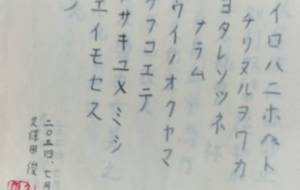 イロハニホヘト
チリヌルヲワカ
ヨタレソツネ
ナラム
ウイノオクヤマ
フコエテ
サキユメミシ
エイモセス
ン
七月
久保田 俊